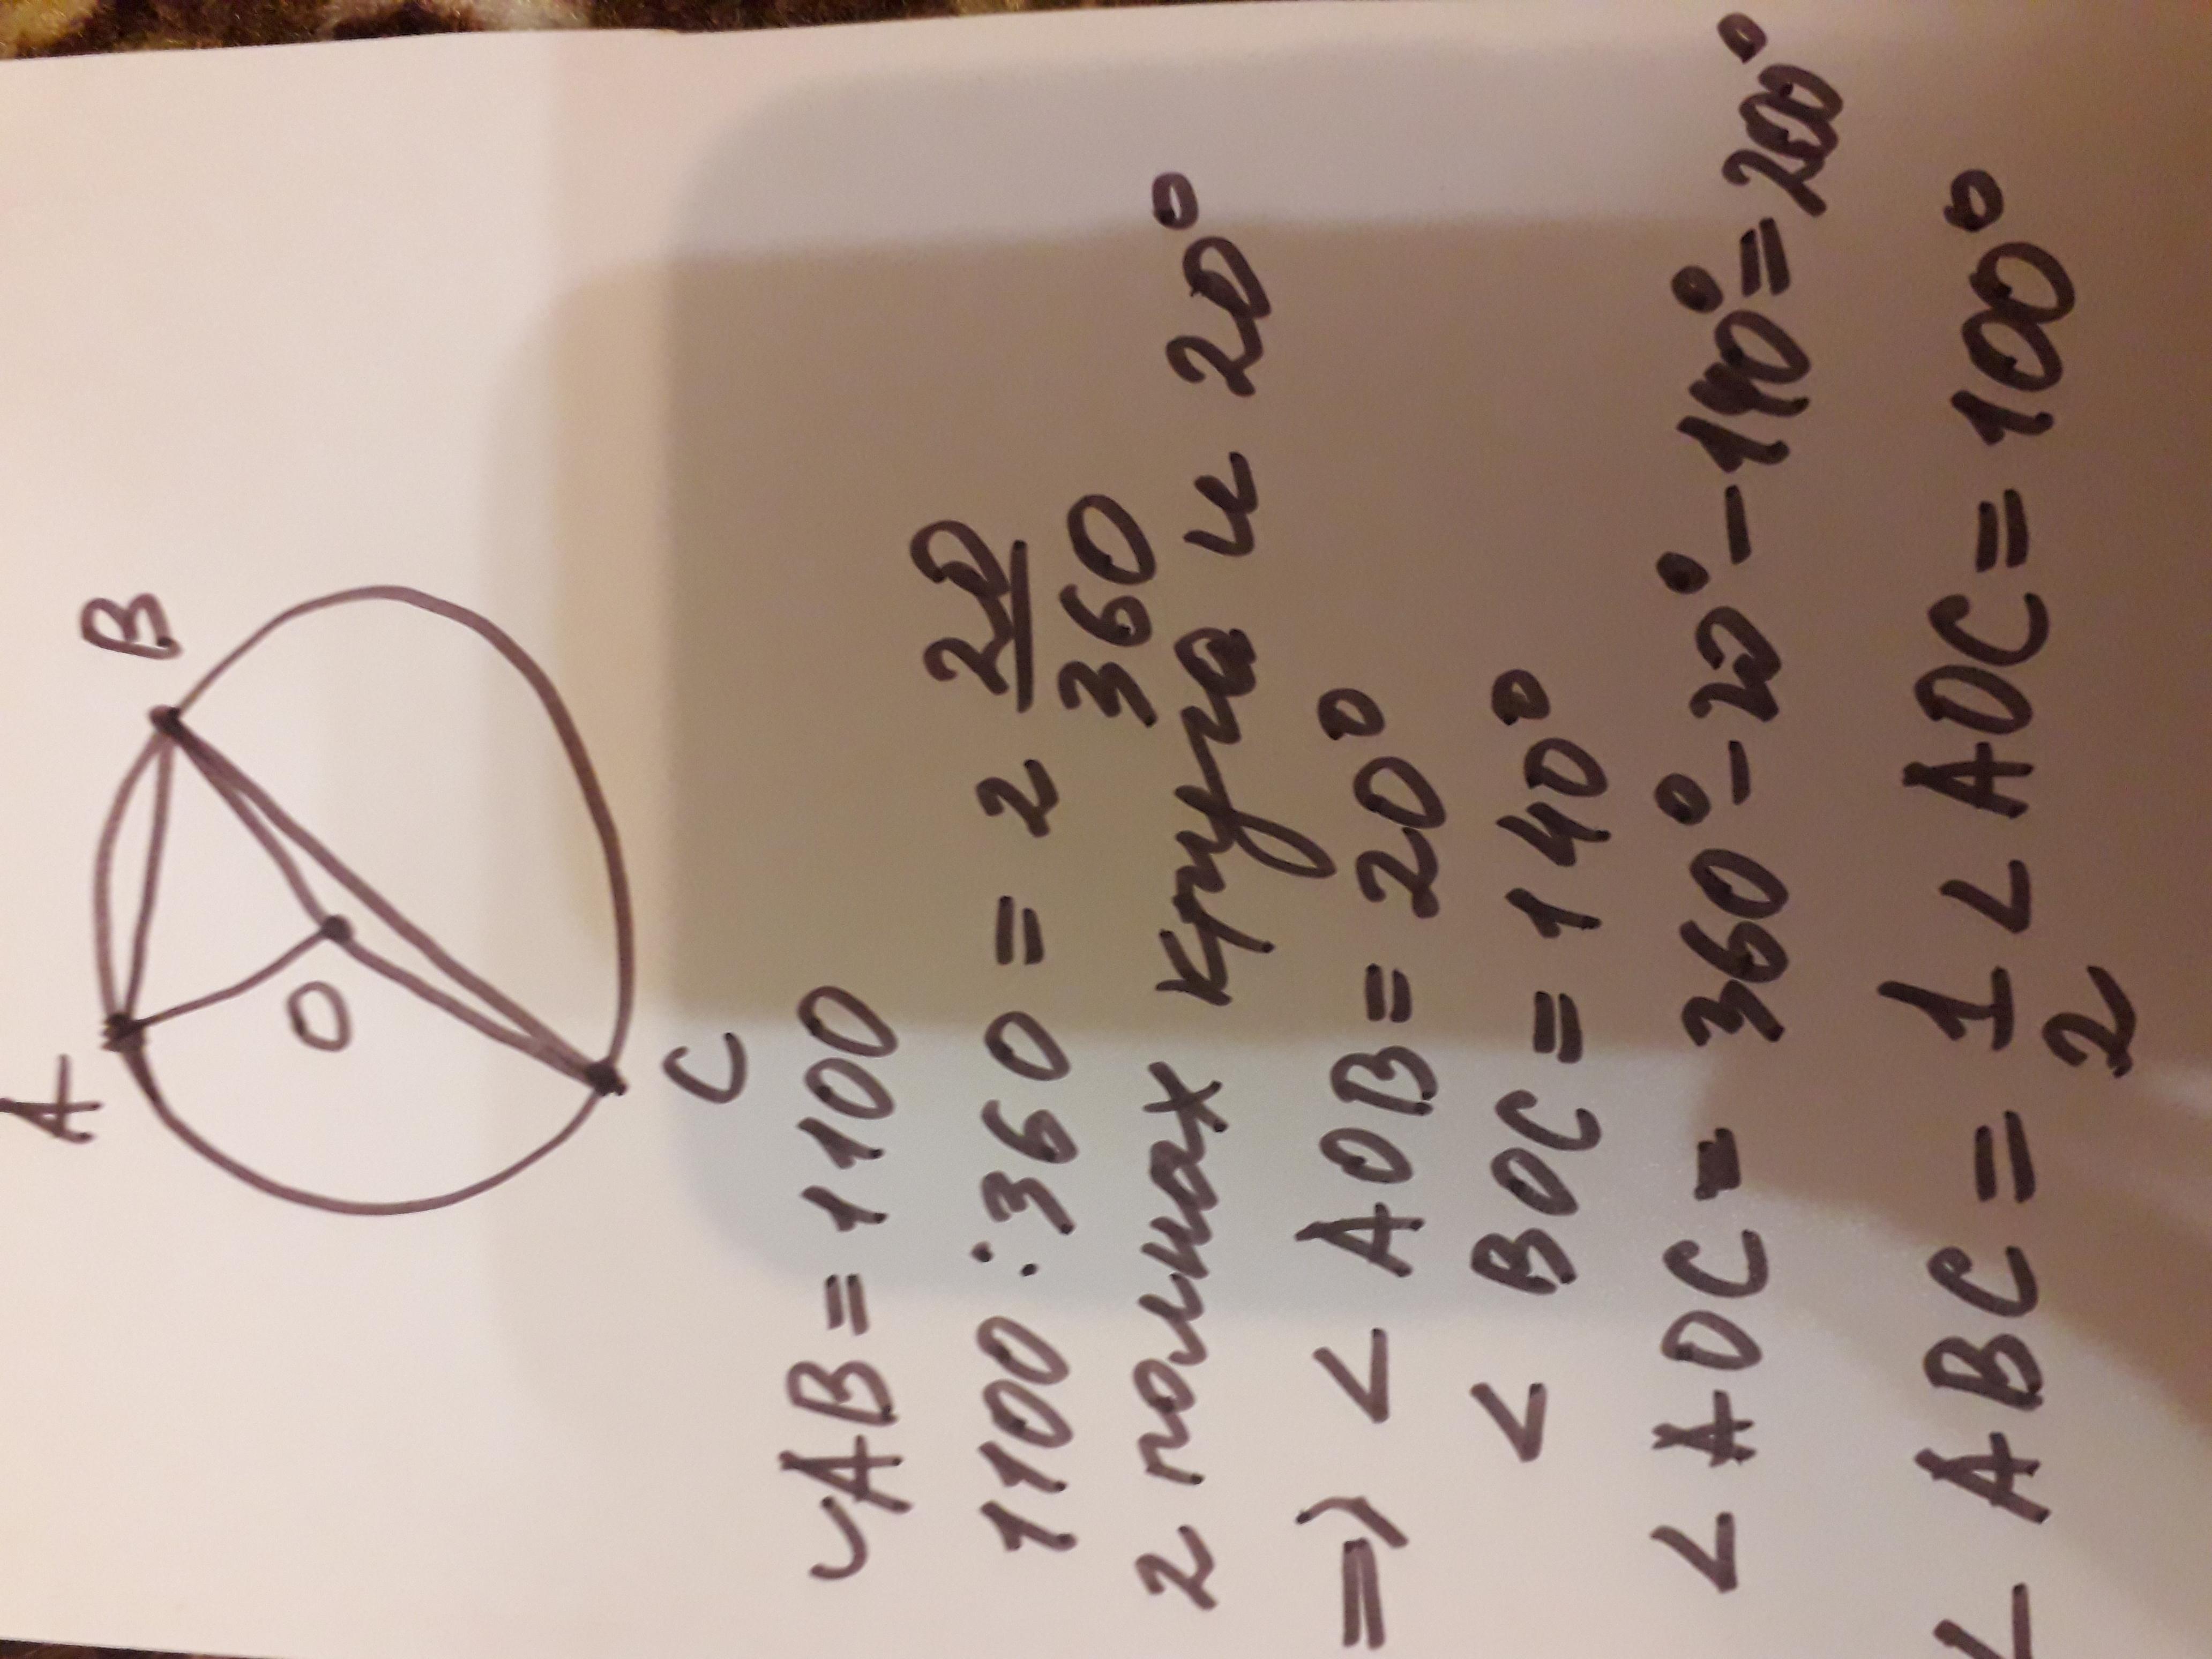 A
B
O
C
◡AB = 1100
1100 : 360 = 2 20/360
2 полных круга и 20°
=> < AOB = 20°
< BOC = 140°
< AOC = 360° - 20° - 140° = 200°
< ABC = 1/2 < AOC = 100°